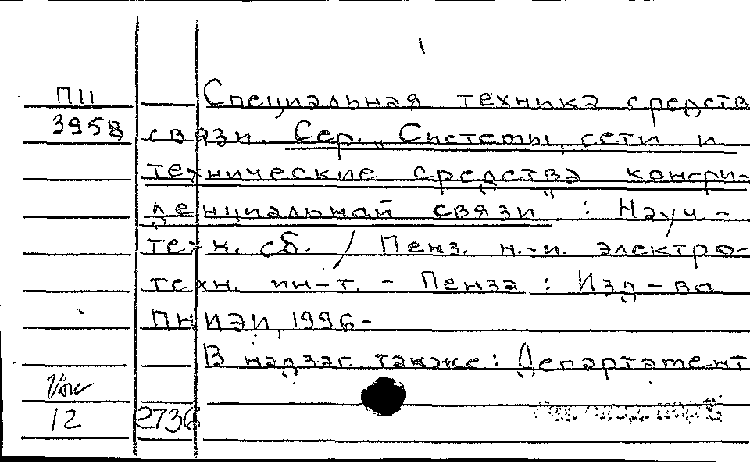 1
П11 Специальная техника средств
3958 связи. Сер. „Системы, сети и
технические средства конфи-
денциальной связи" : Науч.-
техн. сб. / Пенз. н.-и. электро-
техн. ин-т. - Пенза : Изд-во
ПНИЭИ, 1996-
В надзаг. также: Департамент
12 2736